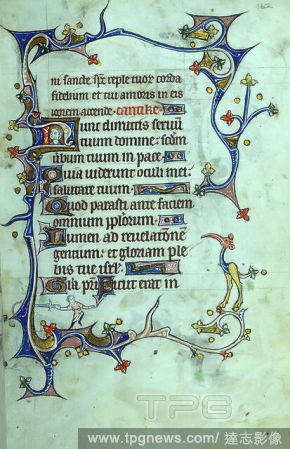 162
ni sancte spc reple tuor corda
fidelium et tui amoris in eis
ignem accende. cantike
Nunc dimittis seruū
tuum domine: scdm
uerbum tuum in pace
Quia uiderunt oculi mei
salutare tuum
Quod parasti ante faciem
omnium pplorum
Lumen ad reuelatōnē
gentium: et gloriam ple
bis tue isrl
Gla pri Sicut erat in
TPG
www.tpgnews.com/ 達志影像